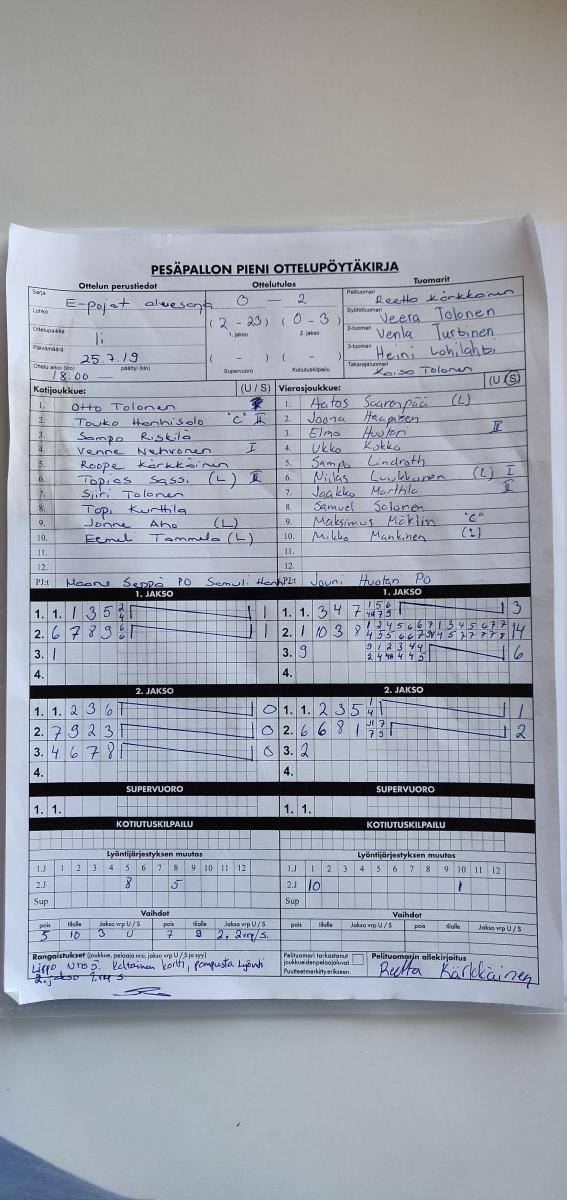 PESÄPALLON PIENI OTTELUPÖYTÄKIRJA
Ottelun perustiedot Ottelutulos Tuomarit
Sarja E-pojat 0 — 2 Pelituomari Reetta Kärkkäinen
Lohko (2 - 23) (0 - 3) Syöttötuomari Veera Tolonen
Ottelupaikka Ii 1. jakso 2. jakso 2-tuomari Venla Turtinen
Päivämäärä 25.7.19 ( - ) ( - ) 3-tuomari Heini Lohilahti
Ottelu alkoi (klo) 18.00 päättyi (klo) Supervuoro Kotiutuskilpailu Takarajatuomari Kaisa Tolonen
Kotijoukkue: (U / S) Vierasjoukkue: (U / S)
1. Otto Tolonen 1. Aatos Saarenpää (L)
2. Touko Hanhisalo "C" II 2. Joona Haapanen
3. Sampo Riskilä 3. Elmo Huotari II
4. Venne Nehvonen I 4. Ukko Kokko
5. Roope Kärkkäinen 5. Sampo Lindroth
6. Topias Sassi (L) II 6. Niilas Luukkonen (L) I
7. Siiri Tolonen 7. Jaakko Marttila II
8. Topi Kurttila 8. Samuel Salonen
9. Janne Aho (L) 9. Maksimus Märlin "C"
10. Eemeli Tammela (L) 10. Mikko Mankinen (L)
11. 11.
12. 12.
PJ:t Seppä PO Samuli PJ:t Jouni Huotari PO
1. JAKSO 1. JAKSO
1. 1. 1 3 5 1 1. 1. 3 4 7 3
2. 6 7 8 9 1 2. 1 10 3 8 14
3. 1 3. 9 6
4. 4.
2. JAKSO 2. JAKSO
1. 1. 2 3 6 0 1. 1. 2 3 5 1
2. 7 9 2 3 0 2. 6 6 8 1 2
3. 4 6 7 8 0 3. 2
4. 4.
SUPERVUORO SUPERVUORO
1. 1. 1. 1.
KOTIUTUSKILPAILU KOTIUTUSKILPAILU
Lyöntijärjestyksen muutos Lyöntijärjestyksen muutos
1.J 1 2 3 4 5 6 7 8 9 10 11 12 1.J 1 2 3 4 5 6 7 8 9 10 11 12
2.J 8 5 2.J 10 1
Sup Sup
Vaihdot Vaihdot
pois tilalle Jakso vrp U / S pois tilalle Jakso vrp U / S pois tilalle Jakso vrp U / S pois tilalle Jakso vrp U / S
5 10 3 U 7 9 2. 2vrp/S.
Rangaistukset (joukkue, pelaaja nro, jakso vrp U / S ja syy) Pelituomari tarkastanut joukkueiden pelaajaluvat. Puutteet merkitty erikseen. Pelituomarin allekirjoitus
Lippo Nro 5. Keltainen kortti, pompusta lyönti Reetta Kärkkäinen
2. jakso 1.vrp S